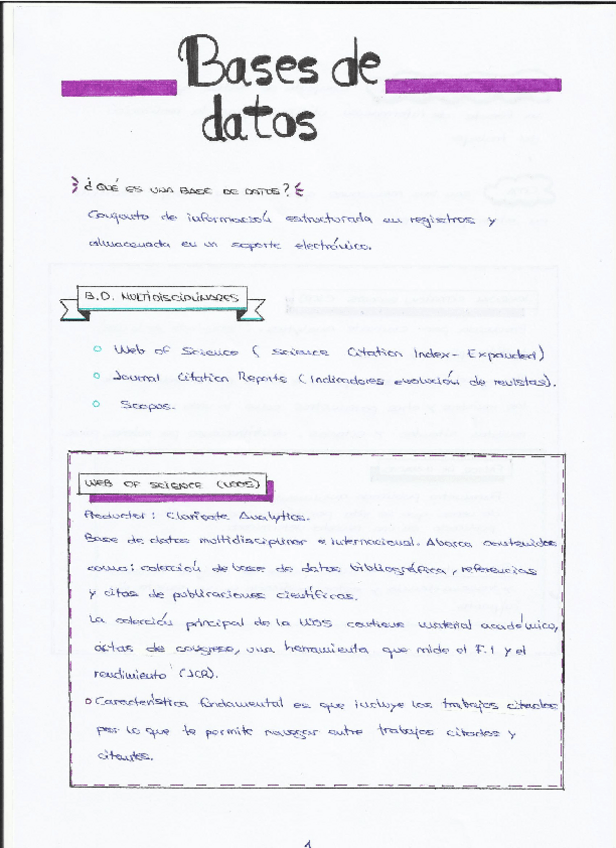 Bases de
datos
¿QUÉ ES UNA BASE DE DATOS?
Conjunto de información estructurada en registros y
almacenada en un soporte electrónico.
B.D. MULTIDISCIPLINARES
Web of Science ( Science Citation Index- Expanded)
Journal Citation Reports (Indicadores evolución de revistas).
Scopus.
WEB OF SCIENCE (WOS)
Productor: Clarivate Analytics.
Base de datos multidisciplinar e internacional. Abarca contenidos
como: colección de base de datos bibliográfica, referencias
y citas de publicaciones científicas.
La colección principal de la WOS contiene material académico,
actas de congreso, una herramienta que mide el F.I y el
rendimiento (JCR).
Característica fundamental es que incluye los trabajos citados
por lo que te permite navegar entre trabajos citados y
citantes.
1